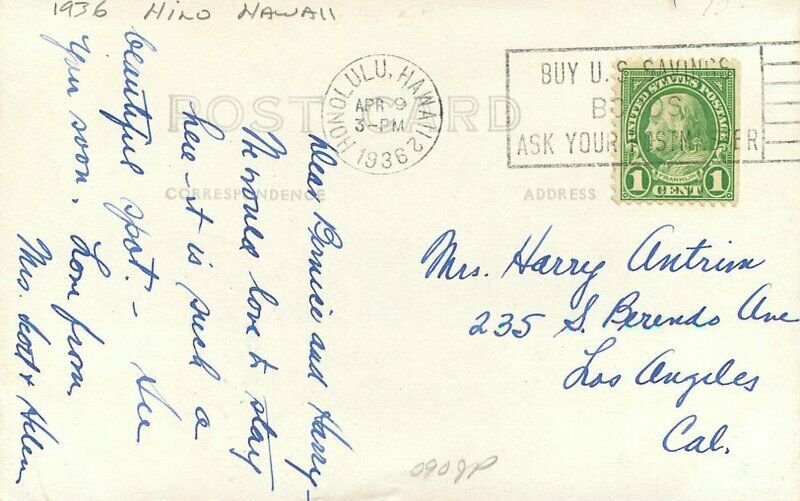 1936 HILO HAWAII
HONOLULU, HAWAII 2
APR 9
3-PM
1936
BUY U.S. SAVINGS
BONDS
ASK YOUR POSTMASTER
UNITED STATES POSTAGE
FRANKLIN
1 CENT 1
POST CARD
CORRESPONDENCE
ADDRESS
Dear Bernice and Harry-
We would love to stay
here - it is such a
beautiful spot. - See
you soon. Love from
Mrs. Scott & Helen
Mrs. Harry Antrim
235 S. Berendo Ave
Los Angeles
Cal.